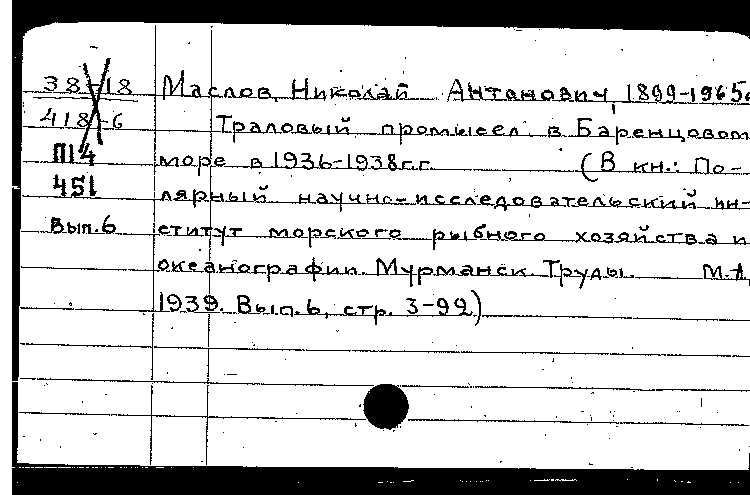 38-18 Маслов, Николай Антонович, 1899-1965.
418-6 Траловый промысел в Баренцовом
П14 море в 1936-1938г.г. (В кн.: По-
451 лярный научно-исследовательский ин-
Вып.6 ститут морского рыбного хозяйства и
океанографии. Мурманск. Труды. М.-Л,
1939. Вып.6, стр. 3-99)